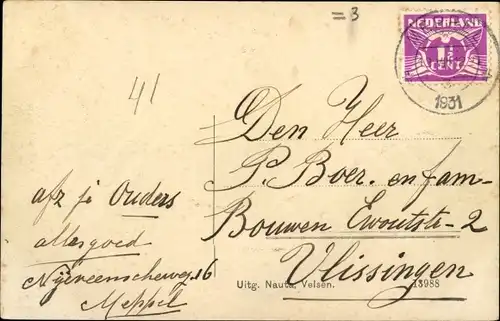 = 3
NEDERLAND
1½
CENT
1931
41
Den Heer
P. Boer. en fam-
Bouwen Ewoutstr-2
Vlissingen
afz je Ouders
alles goed
Nijeveenscheweg 16
Meppel
Uitg. Nauta, Velsen. 13988